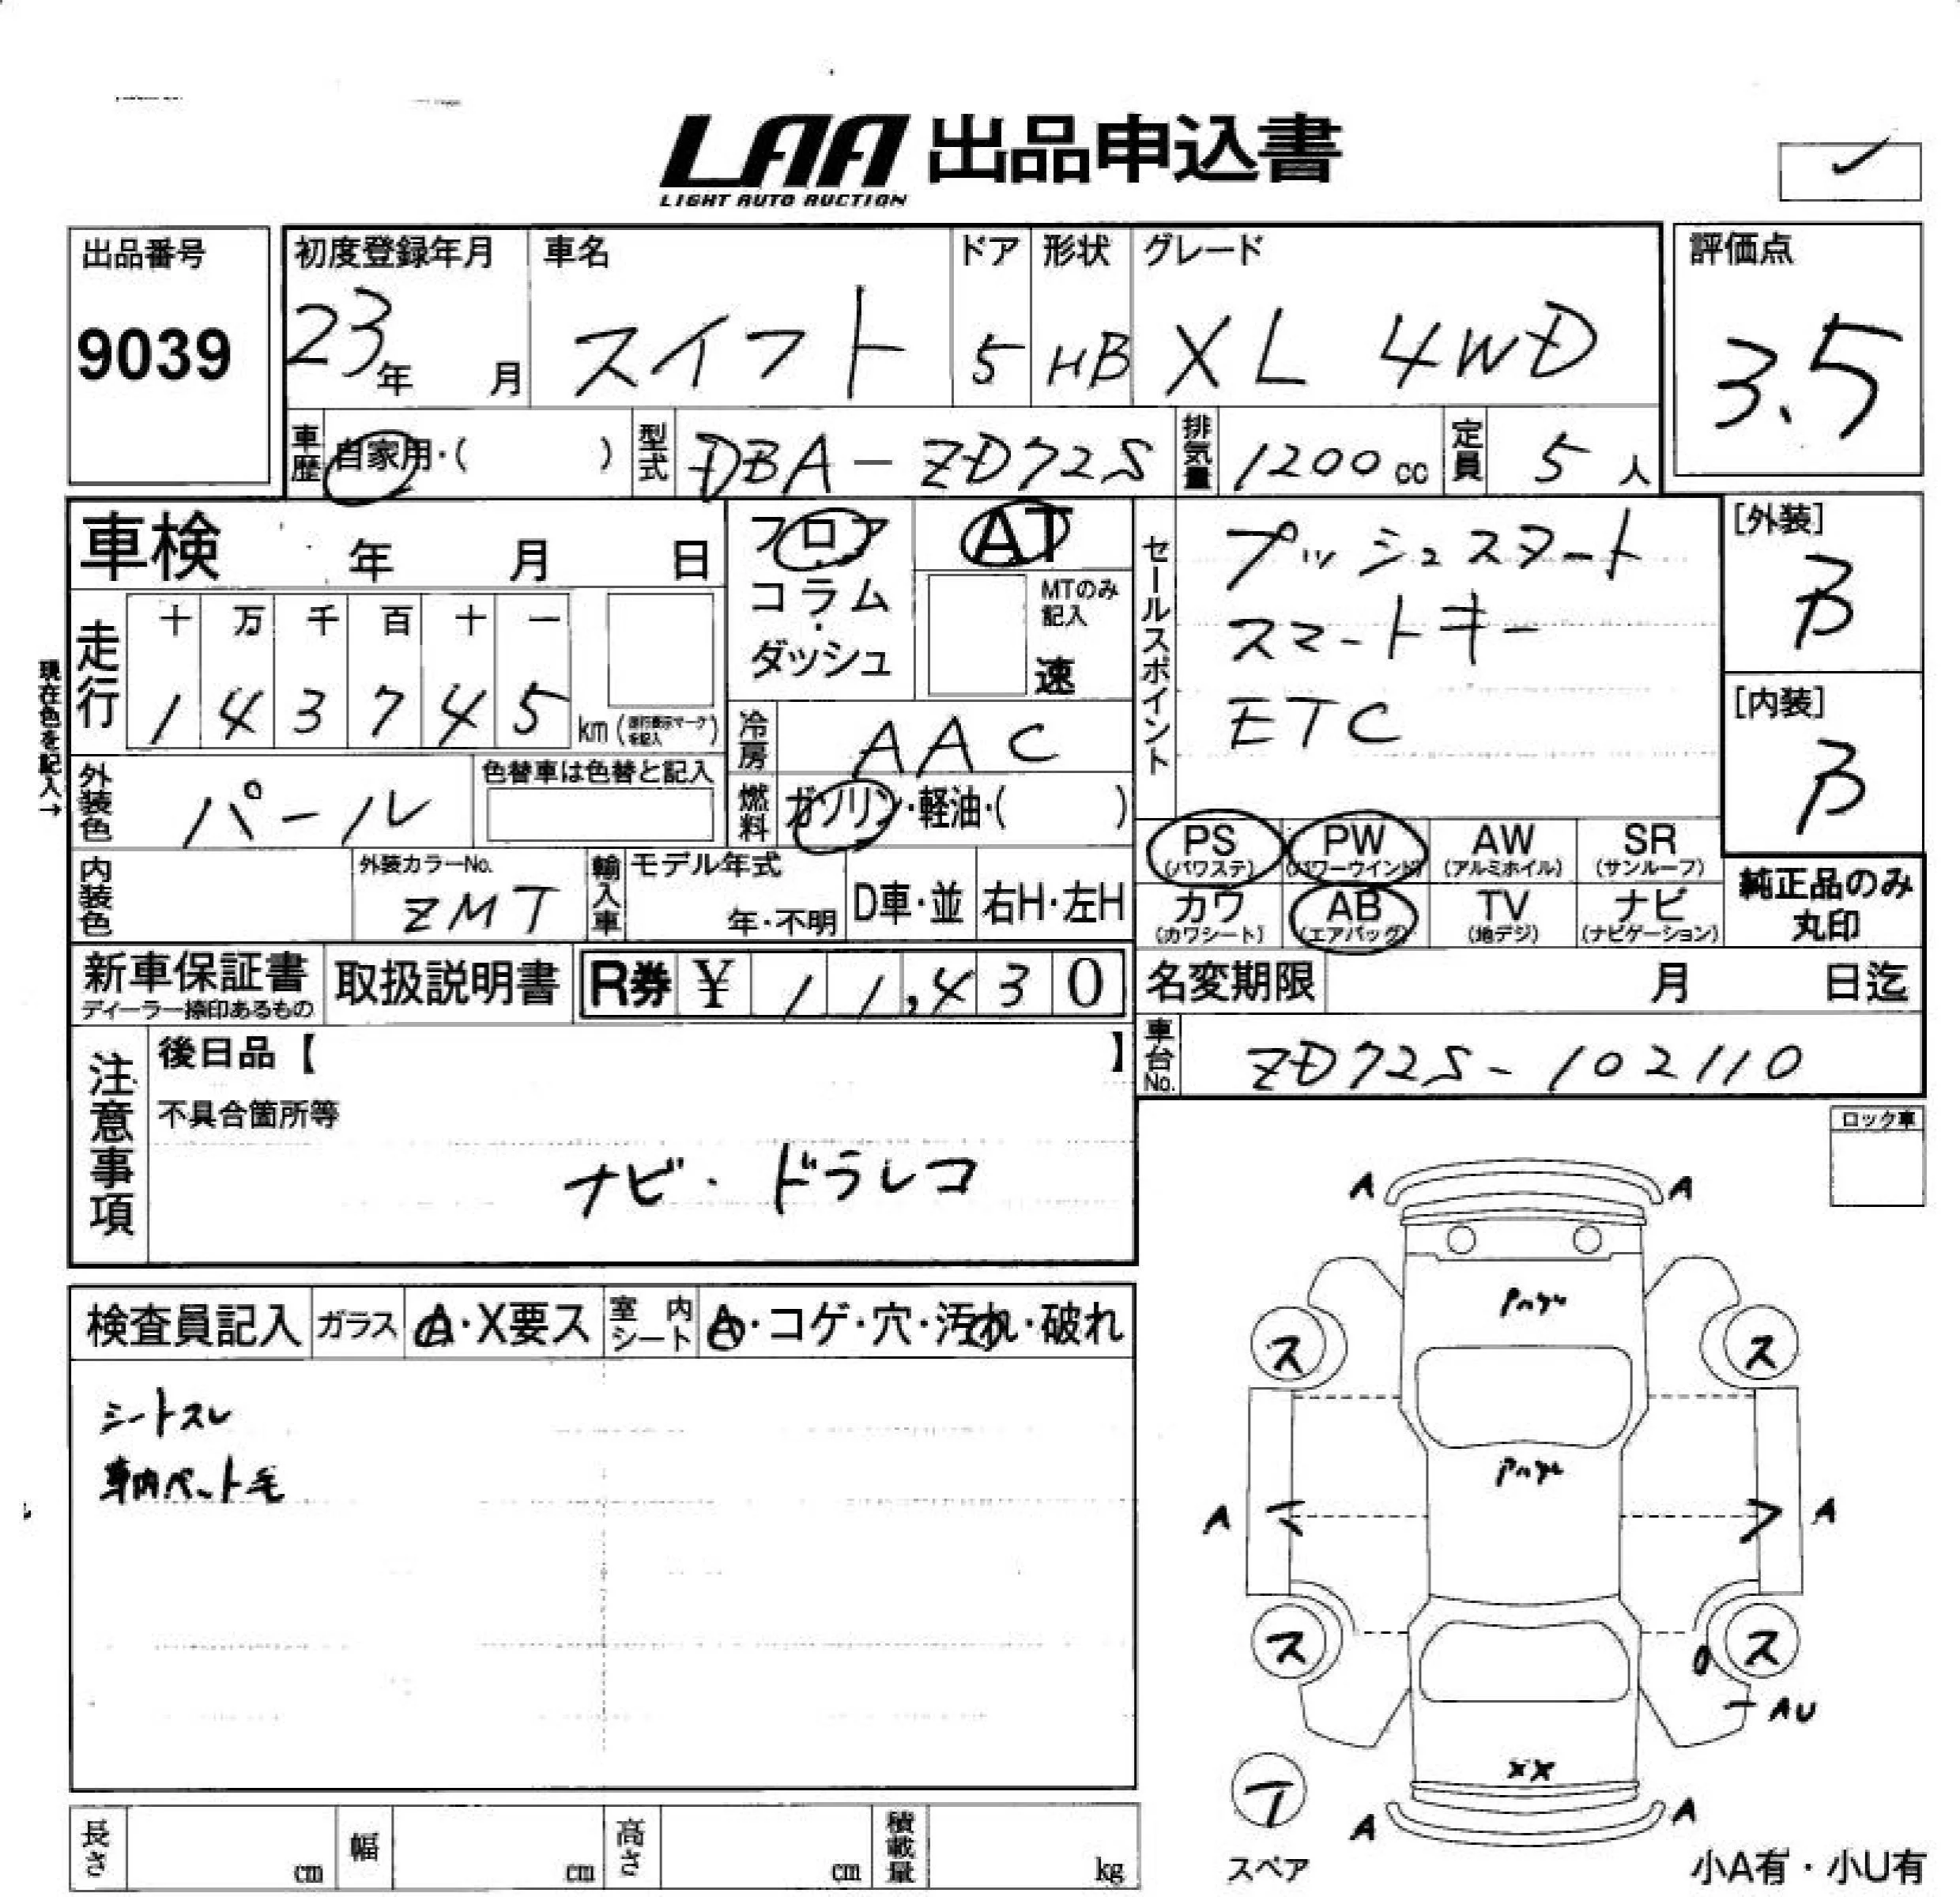 LAA 出品申込書
LIGHT AUTO AUCTION
出品番号
9039
初度登録年月
23年 月
車名
スイフト
ドア
5
形状
HB
グレード
XL 4WD
評価点
3.5
車歴 自家用・( )
型式 DBA-ZD72S
排気量 1200 cc
定員 5 人
車検 年 月 日
フロア
コラム・
ダッシュ
AT
MTのみ
記入
速
セールスポイント
プッシュスタート
スマートキー
ETC
[外装]
B
[内装]
B
現在色を記入→
走行
十 万 千 百 十 一
1 4 3 7 4 5 km (走行表示マークを記入)
冷房 AAC
外装色 パール
色替車は色替と記入
燃料 ガソリン・軽油・( )
PS (パワステ)
PW (パワーウインド)
AW (アルミホイル)
SR (サンルーフ)
カワ (カワシート)
AB (エアバッグ)
TV (地デジ)
ナビ (ナビゲーション)
純正品のみ
丸印
内装色
外装カラーNo.
ZMT
輸入車
モデル年式
年・不明
D車・並
右H・左H
新車保証書
ディーラー捺印あるもの
取扱説明書
R券 ¥ 11,430
名変期限 月 日迄
車台No. ZD72S-102110
注意事項
後日品【 】
不具合箇所等
ナビ・ドラレコ
ロック車
検査員記入
ガラス
A・X要ス
室内シート
A・コゲ・穴・汚れ・破れ
シートスレ
車内ペット毛
A A
ス ス
A A
ス ス
AU
XX
A A
T
スペア
長さ cm
幅 cm
高さ cm
積載量 kg
小A有・小U有